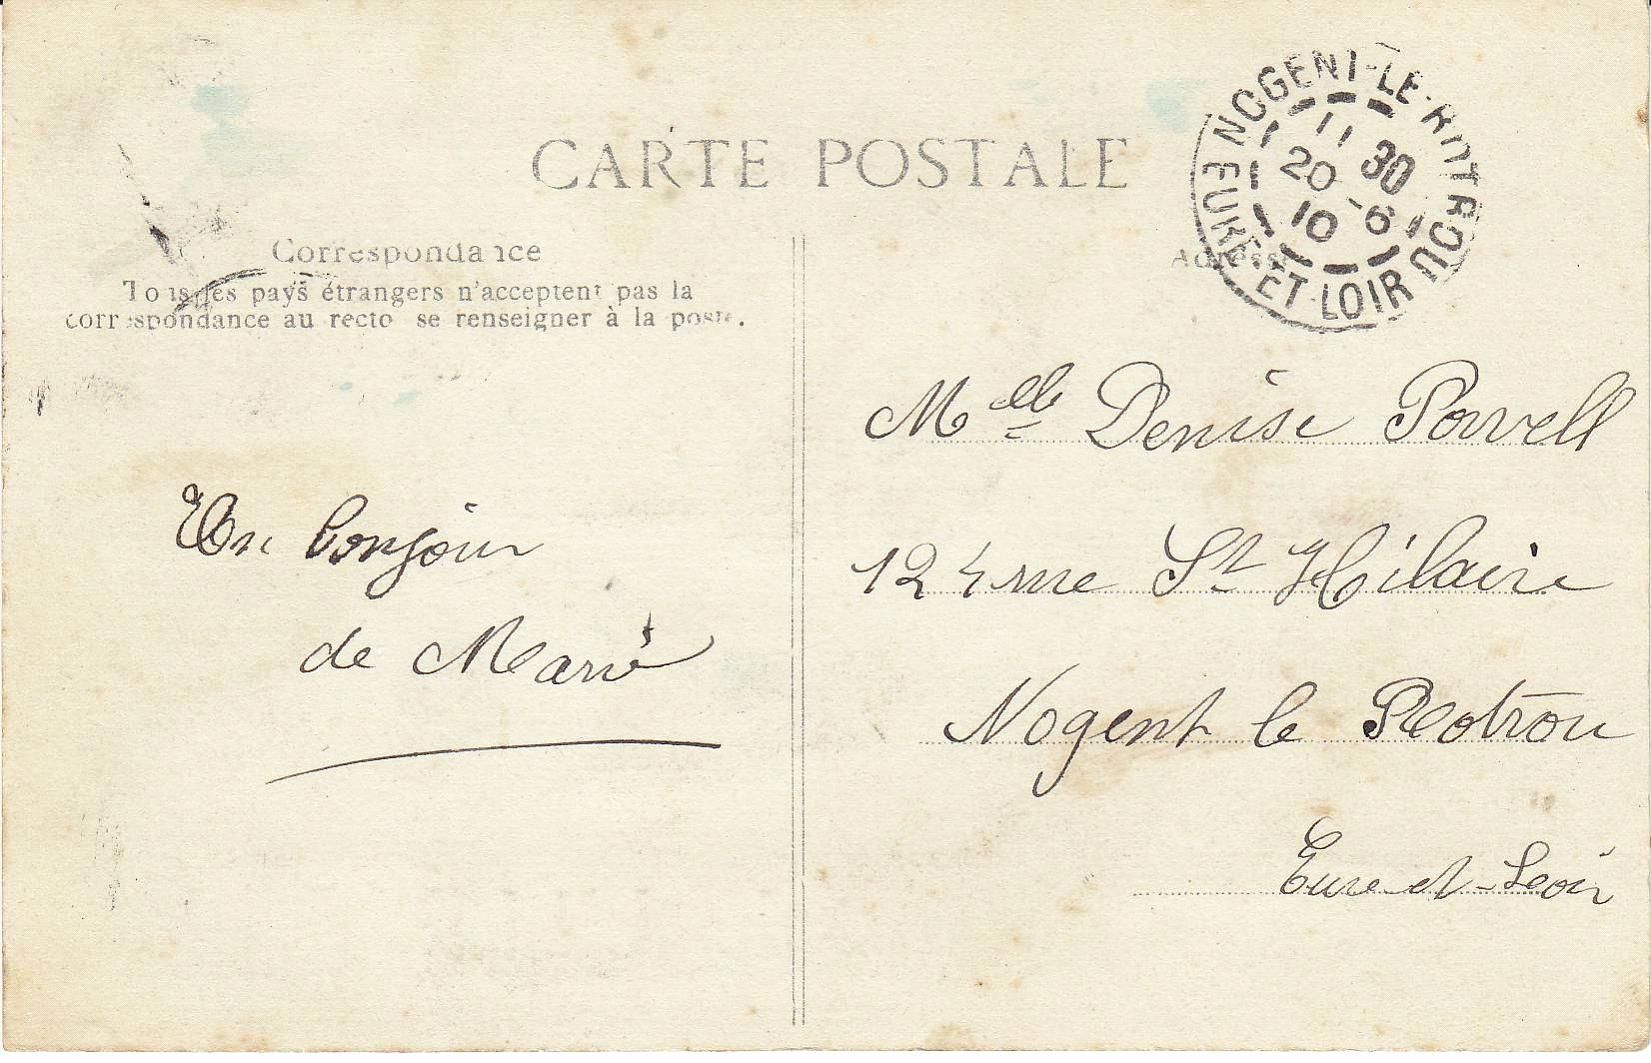 CARTE POSTALE
Correspondance
Tous les pays étrangers n'acceptent pas la
correspondance au recto se renseigner à la poste.
Un bonjour
de Marie
NOGENT-LE-ROTROU
11 30
20 -6
10
EURE ET LOIR
Adresse
Mlle Denise Powell
124 rue St Hilaire
Nogent le Rotrou
Eure-et-Loir